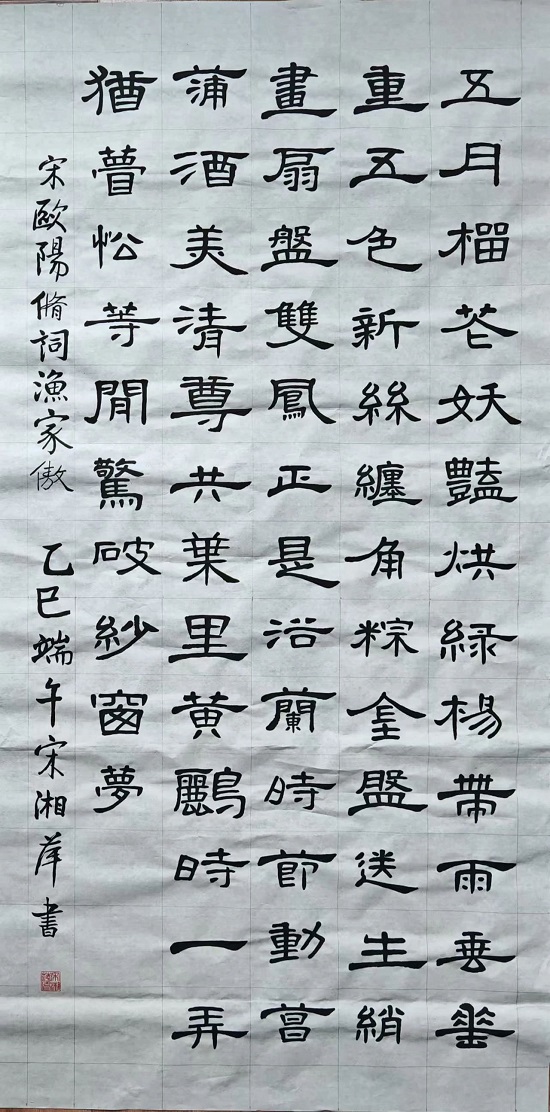 五月榴花妖豔烘緑楊帶雨垂垂
重五色新絲纏角粽金盤送生綃
畫扇盤雙鳳正是浴蘭時節動菖
蒲酒美清尊共葉里黄鸝時一弄
猶瞢忪等閒驚破紗窗夢
宋歐陽脩詞漁家傲 乙巳端午宋湘萍書